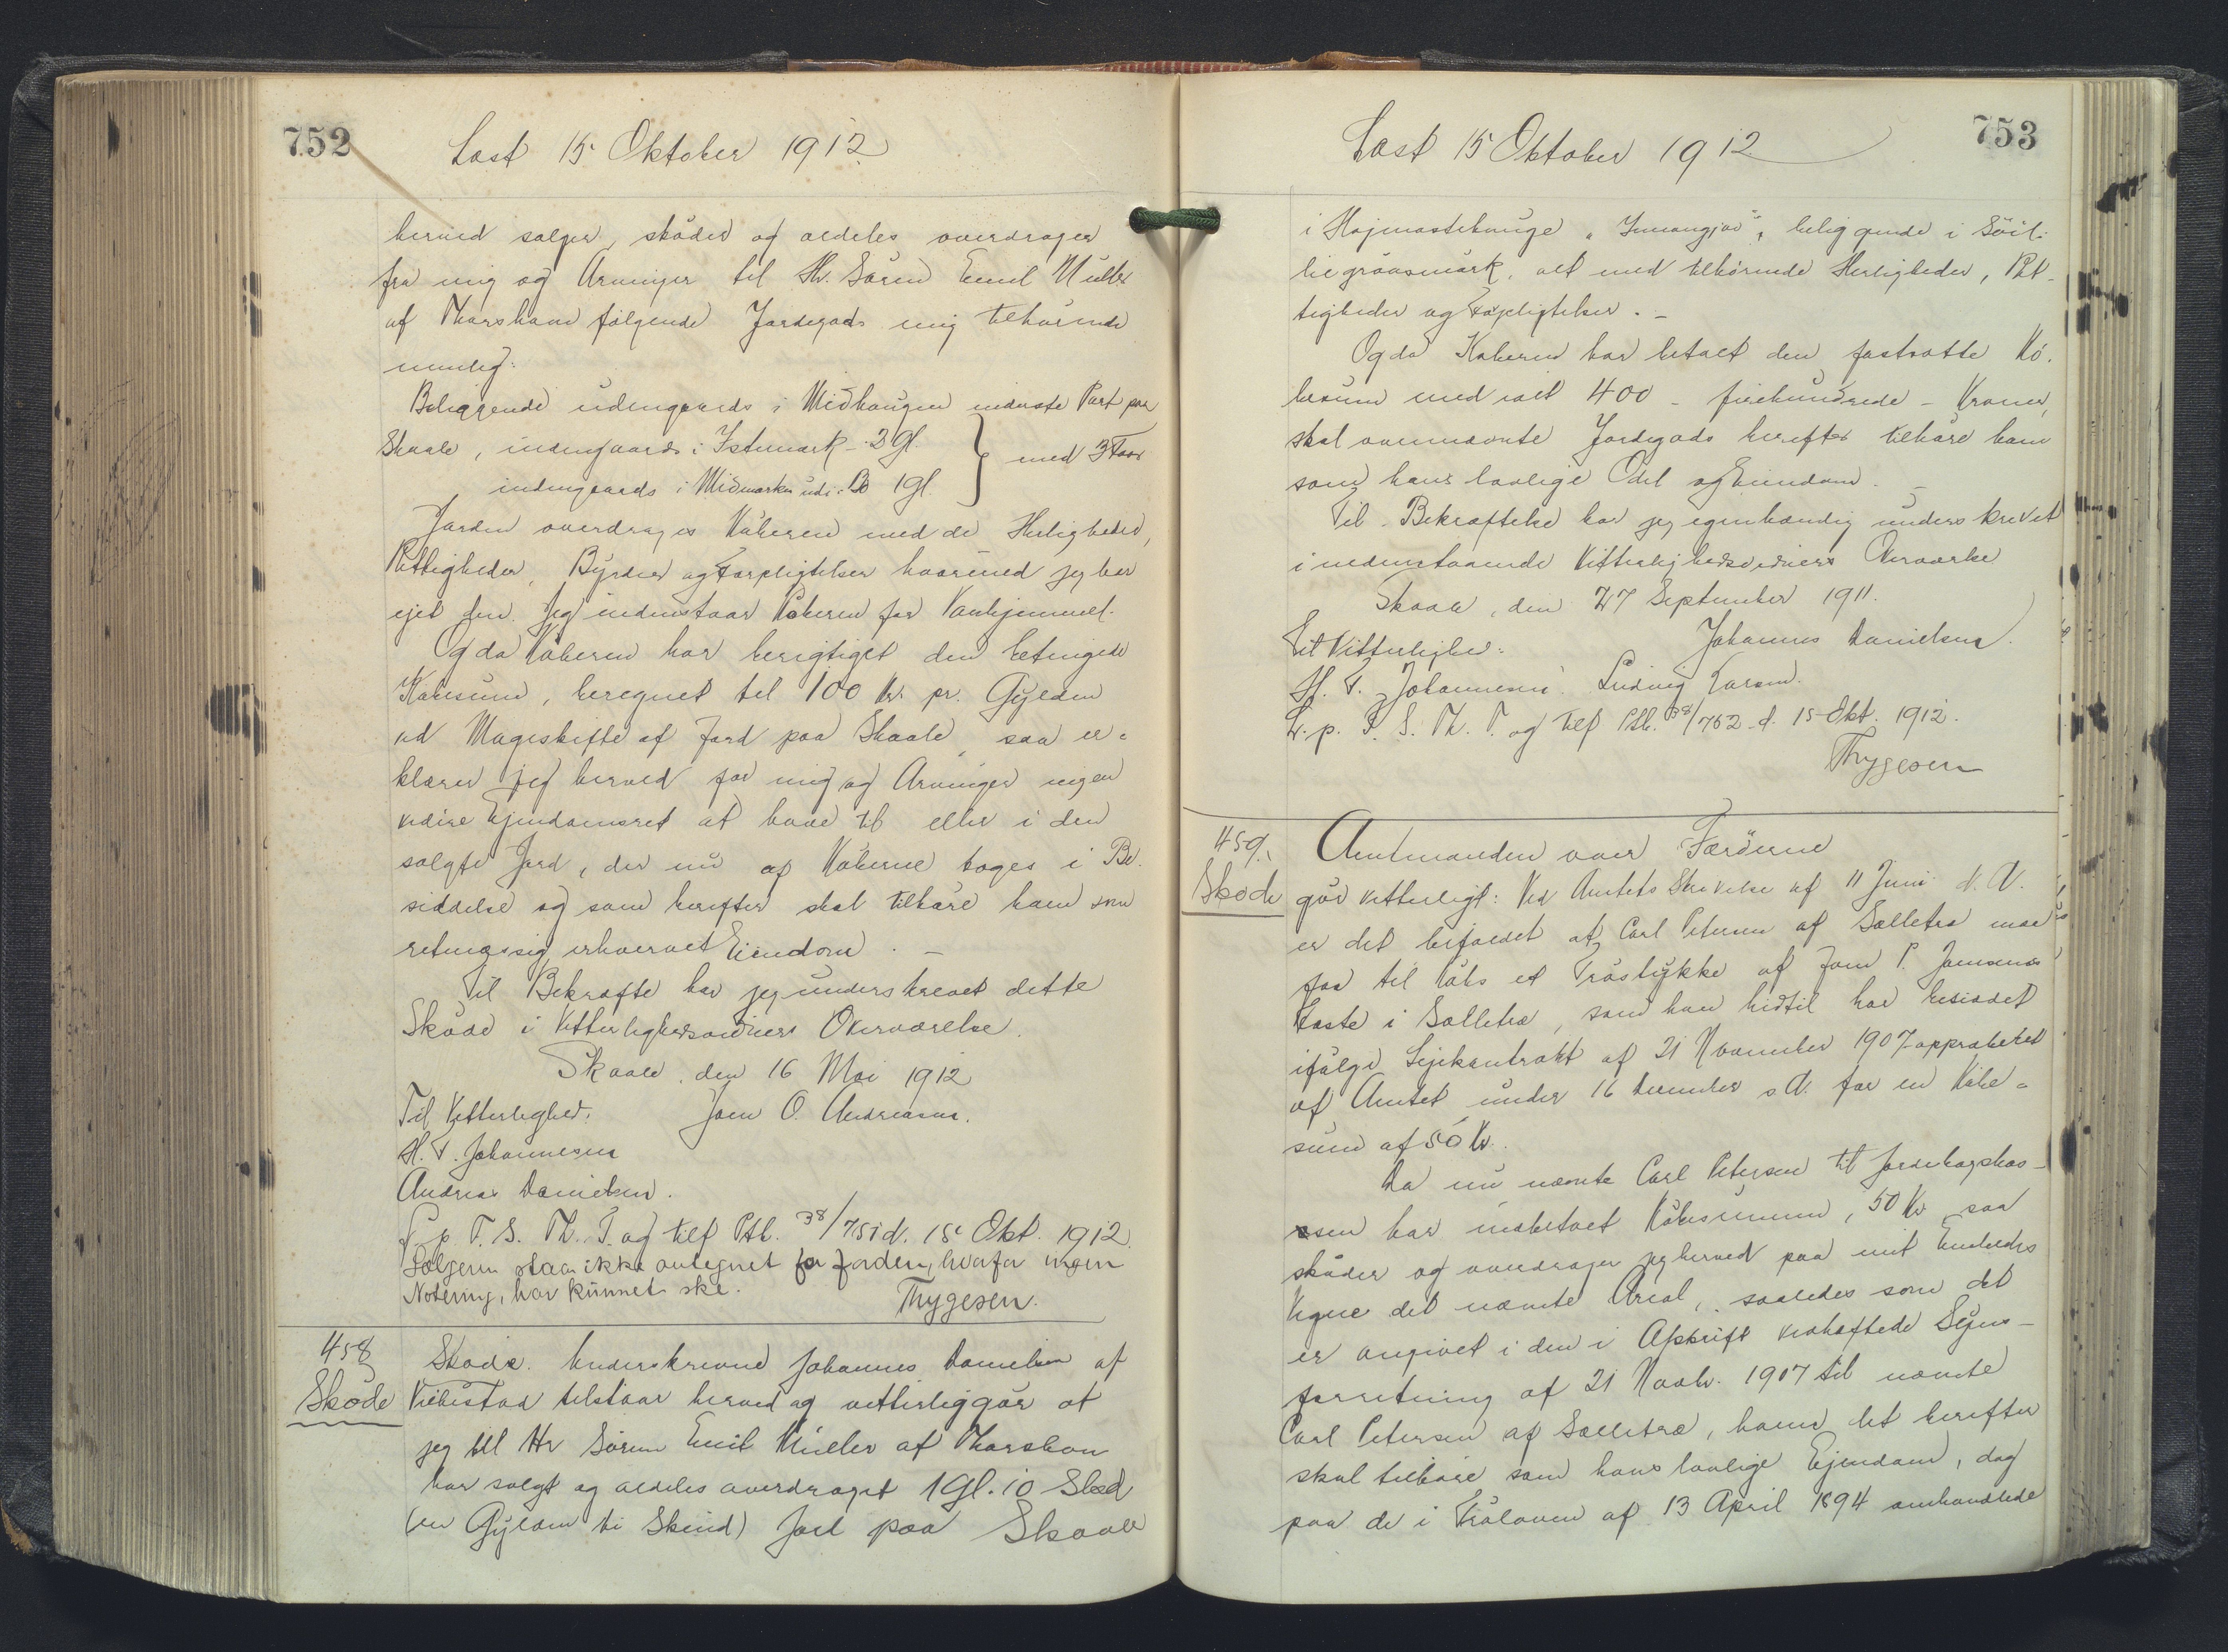 752
Læst 15 Oktober 1912
herved sælger, skøder og aldeles overdrager
fra mig og Arvinger til Hr. Sören Emil Müller
af Thorshavn følgende Jordegods mig tilhørende
nemlig:
Beliggende udengaards i Midhaugen nederste Part paa
Skaale, indengaards i Istemark 2 gl.
indengaards i Midmarken udi: 1 gl. } med 3
Jorden overdrages Køberen med de Herligheder,
Rettigheder, Byrder og Forpligtelser hvormed jeg har
ejet den. Jeg indestaar Køberen for Vanhjemmel.
Og da Køberen har berigtiget den betingede
Købesum, beregnet til 100 Kr. pr. Gylden
ved Mageskifte af Jord paa Skaale, saa er-
klærer jeg herved for mig og Arvinger ingen
videre Ejendomsret at have til eller i den
solgte Jord, der nu af Køberne tages i Be-
siddelse og som herefter skal tilhøre ham som
retmæssig erhvervet Eiendom. –
Til Bekræfte har jeg underskrevet dette
Skøde i Vitterlighedsvidners Overværelse.
Skaale, den 16 Mai 1912
Til Vitterlighed: Joen O. Andreasen.
H. T. Johannesen
Andreas Danielsen.
L. p. F. S. Th. T. og tilf Ptb. 38/751 d. 15 Okt. 1912.
Sælgeren staar ikke antegnet for Jorden, hvorfor ingen
Notering, har kunnet ske.
Thygesen.
458
Skøde
Skøde. Underskrevne Johannes Danielsen af
tilstaar herved og vitterliggør at
jeg til Hr Sörен Emil Müller af Thorshavn
har solgt og aldeles overdraget 1 gl. 10 Skind
(en Gylden ti Skind) Jord paa Skaale
753
Læst 15 Oktober 1912
i Højmastehauge beliggende i
alt med tilhørende Herligheder, Ret-
tigheder og Forpligtelser. –
Og da Køberen har betalt den fastsatte Kø-
besum med ialt 400 – firehundrede – Kroner,
skal ovennævnte Jordegods herefter tilhøre ham
som hans lovlige Odel og Eiendom. –
Til Bekræftelse har jeg egenhændig underskrevet
i nedenstaaende Vitterlighedsvidners Overværelse
Skaale, den 27 September 1911.
Til Vitterlighed: Johannes Danielsen.
H. T. Johannesen. Ludvig Larsen.
L. p. F. S. Th. T. og tilf Ptb. 38/752 d. 15 Okt. 1912.
Thygesen
459.
Skøde
Amtmanden over Færöerne
gør vitterligt: Ved Amtets Skrivelse af 11 Juni d. A.
er det bifaldet at Carl Petersen af Selletræ maa
faa til Købs et Trøstykke af Joen P. Joensens
Fæste i Selletræ, som han hidtil har besiddet
ifølge Lejekontrakt af 21 November 1907 approberet
af Amtet under 16 December s. A. for en Købe-
sum af 50 Kr.
Da nu nævnte Carl Petersen til Jordebogskas-
sen har indbetalt Købesummen, 50 Kr, saa
skøder og overdrager jeg herved paa mit Embedes
Vegne det nævnte Areal, saaledes som det
er angivet i den i Afskrift vedhæftede Syns-
forretning af 21 Novbr. 1907 til nævnte
Carl Petersen af Selletræ, hvem det herefter
skal tilhøre som hans lovlige Ejendom, dog
paa de i Trøloven af 13 April 1894 omhandlede